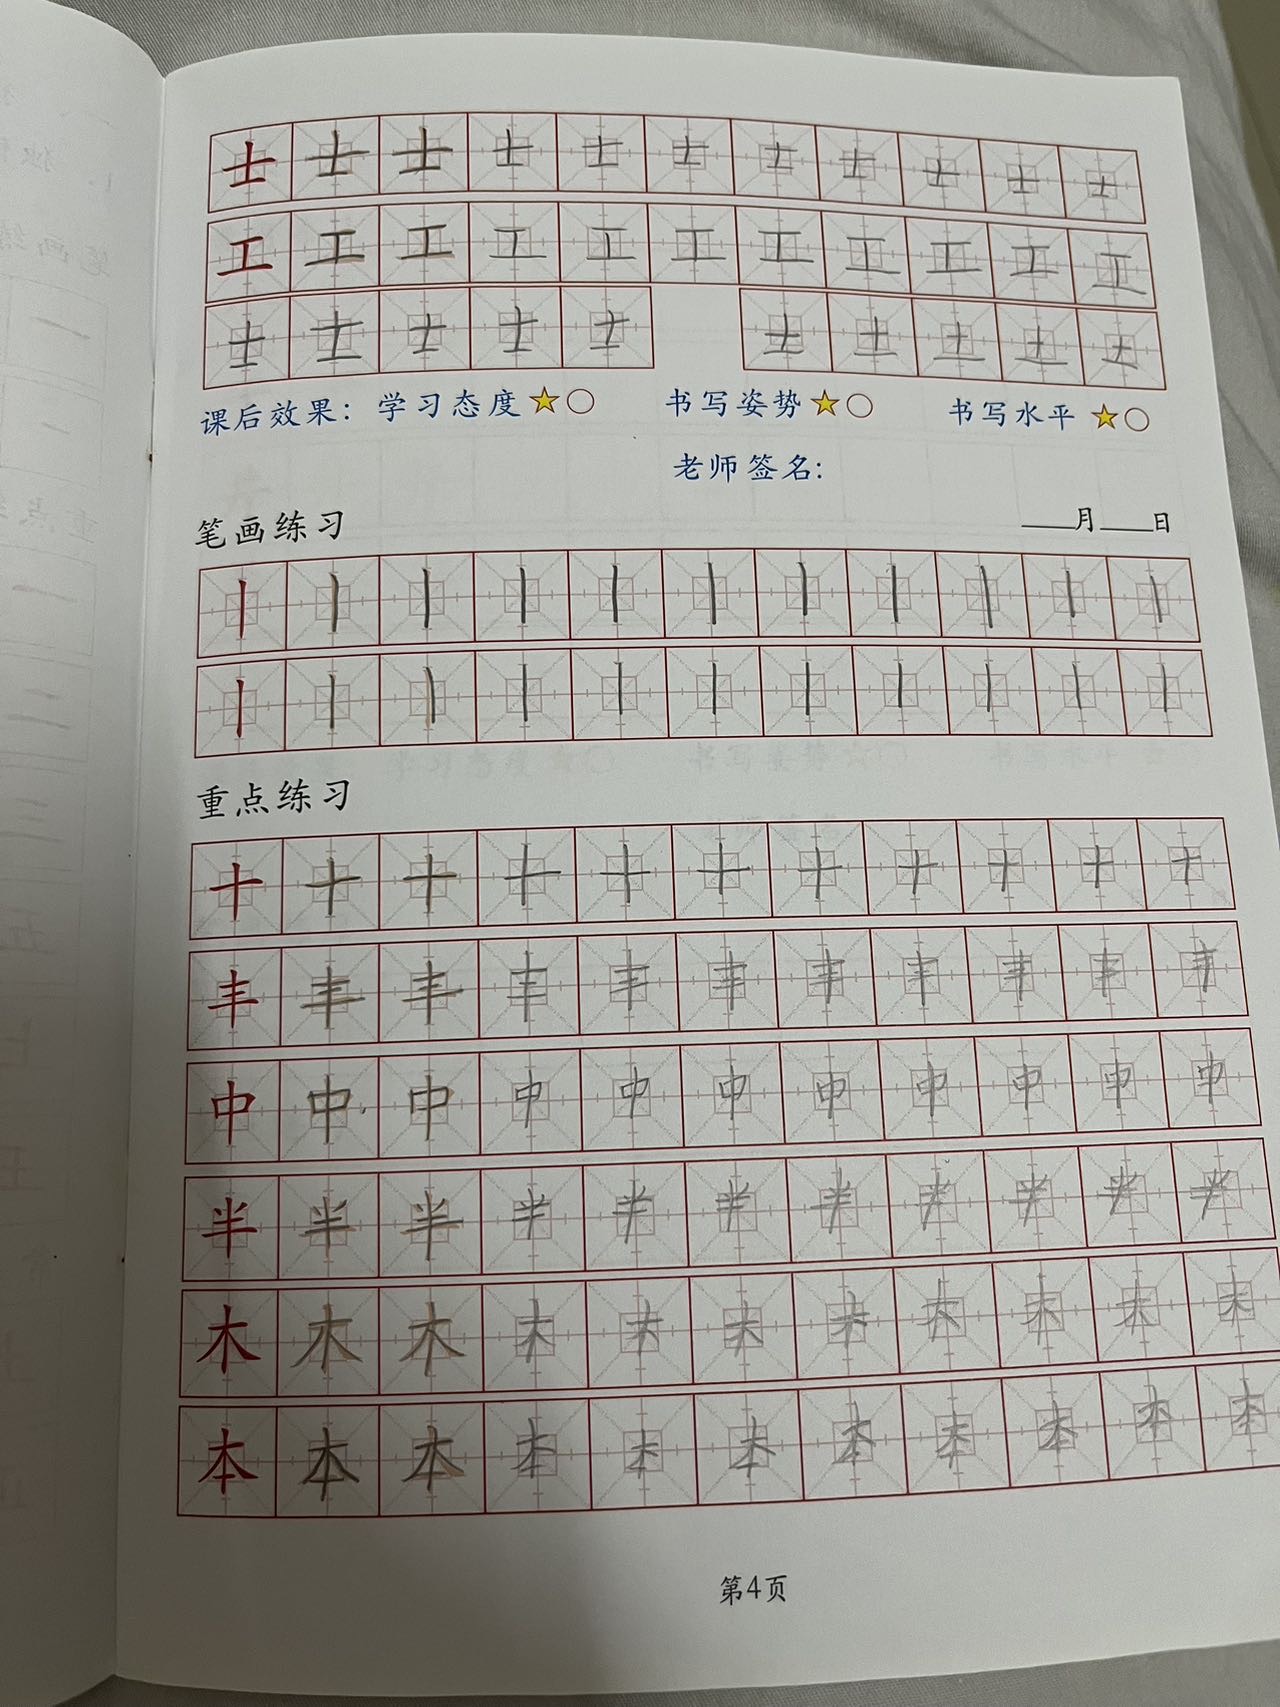 士 士 士 士 士 士 士 士 士 士 士
工 工 工 工 工 工 工 工 工 工 工
士 士 士 士 士 士 士 士 士 士
课后效果：学习态度☆○ 书写姿势☆○ 书写水平☆○
老师签名:
笔画练习 ___月___日
丨 丨 丨 丨 丨 丨 丨 丨 丨 丨 丨
丨 丨 丨 丨 丨 丨 丨 丨 丨 丨 丨
重点练习
十 十 十 十 十 十 十 十 十 十 十
丰 丰 丰 丰 丰 丰 丰 丰 丰 丰 丰
中 中 中 中 中 中 中 中 中 中 中
半 半 半 半 半 半 半 半 半 半 半
木 木 木 木 木 木 木 木 木 木 木
本 本 本 本 本 本 本 本 本 本 本
第4页